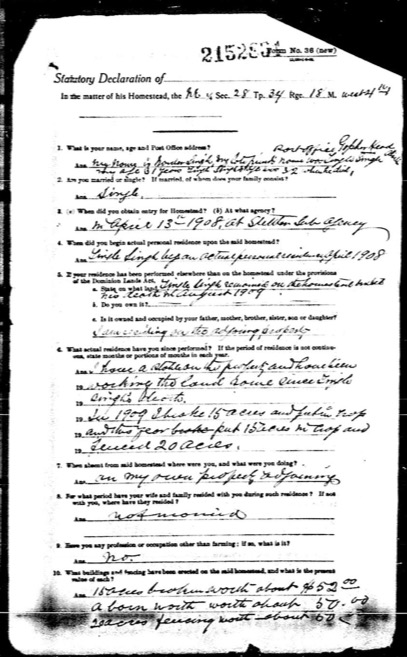 2152634
Form No. 36 (new)
Statutory Declaration of
In the matter of his Homestead, the N.E. of Sec. 28 Tp. 34 Rge. 18 M. west 4th
1. What is your name, age and Post Office address? Post Office, Gopher Head
Ans. My name is Singh, my late name was Singh Singh
my age 31 years 32
2. Are you married or single? If married, of whom does your family consist?
Ans. Single.
3. (a) When did you obtain entry for Homestead? (b) At what agency?
Ans. In April 13th 1908, at Stettler Sub Agency
4. When did you begin actual personal residence upon the said homestead?
Ans. Singh began actual personal residence April 1908
5. If your residence has been performed elsewhere than on the homestead under the provisions
of the Dominion Lands Act,
a. State on what land Singh remained on the homestead until
his death in August 1909
b. Do you own it?
c. Is it owned and occupied by your father, mother, brother, sister, son or daughter?
I am residing on the adjoining property
6. What actual residence have you since performed? If the period of residence is not continu-
ous, state months or portions of months in each year.
Ans. I have a on the property and have been
19 working the land some since
19 Singh's death.
19 In 1909 I broke 15 acres and put in crop
19 and this year broke put 15 acres in crop and
19 fenced 20 acres.
7. When absent from said homestead where were you, and what were you doing?
Ans. on my own property adjoining
8. For what period have your wife and family resided with you during such residence? If not
with you, where have they resided?
Ans. not married
9. Have you any profession or occupation other than farming; if so, what is it?
Ans. No.
10. What buildings and fencing have been erected on the said homestead, and what is the present
value of each?
Ans. 15 acres broken worth about $52.00
a barn worth worth about 50.00
20 acres fencing worth about 60